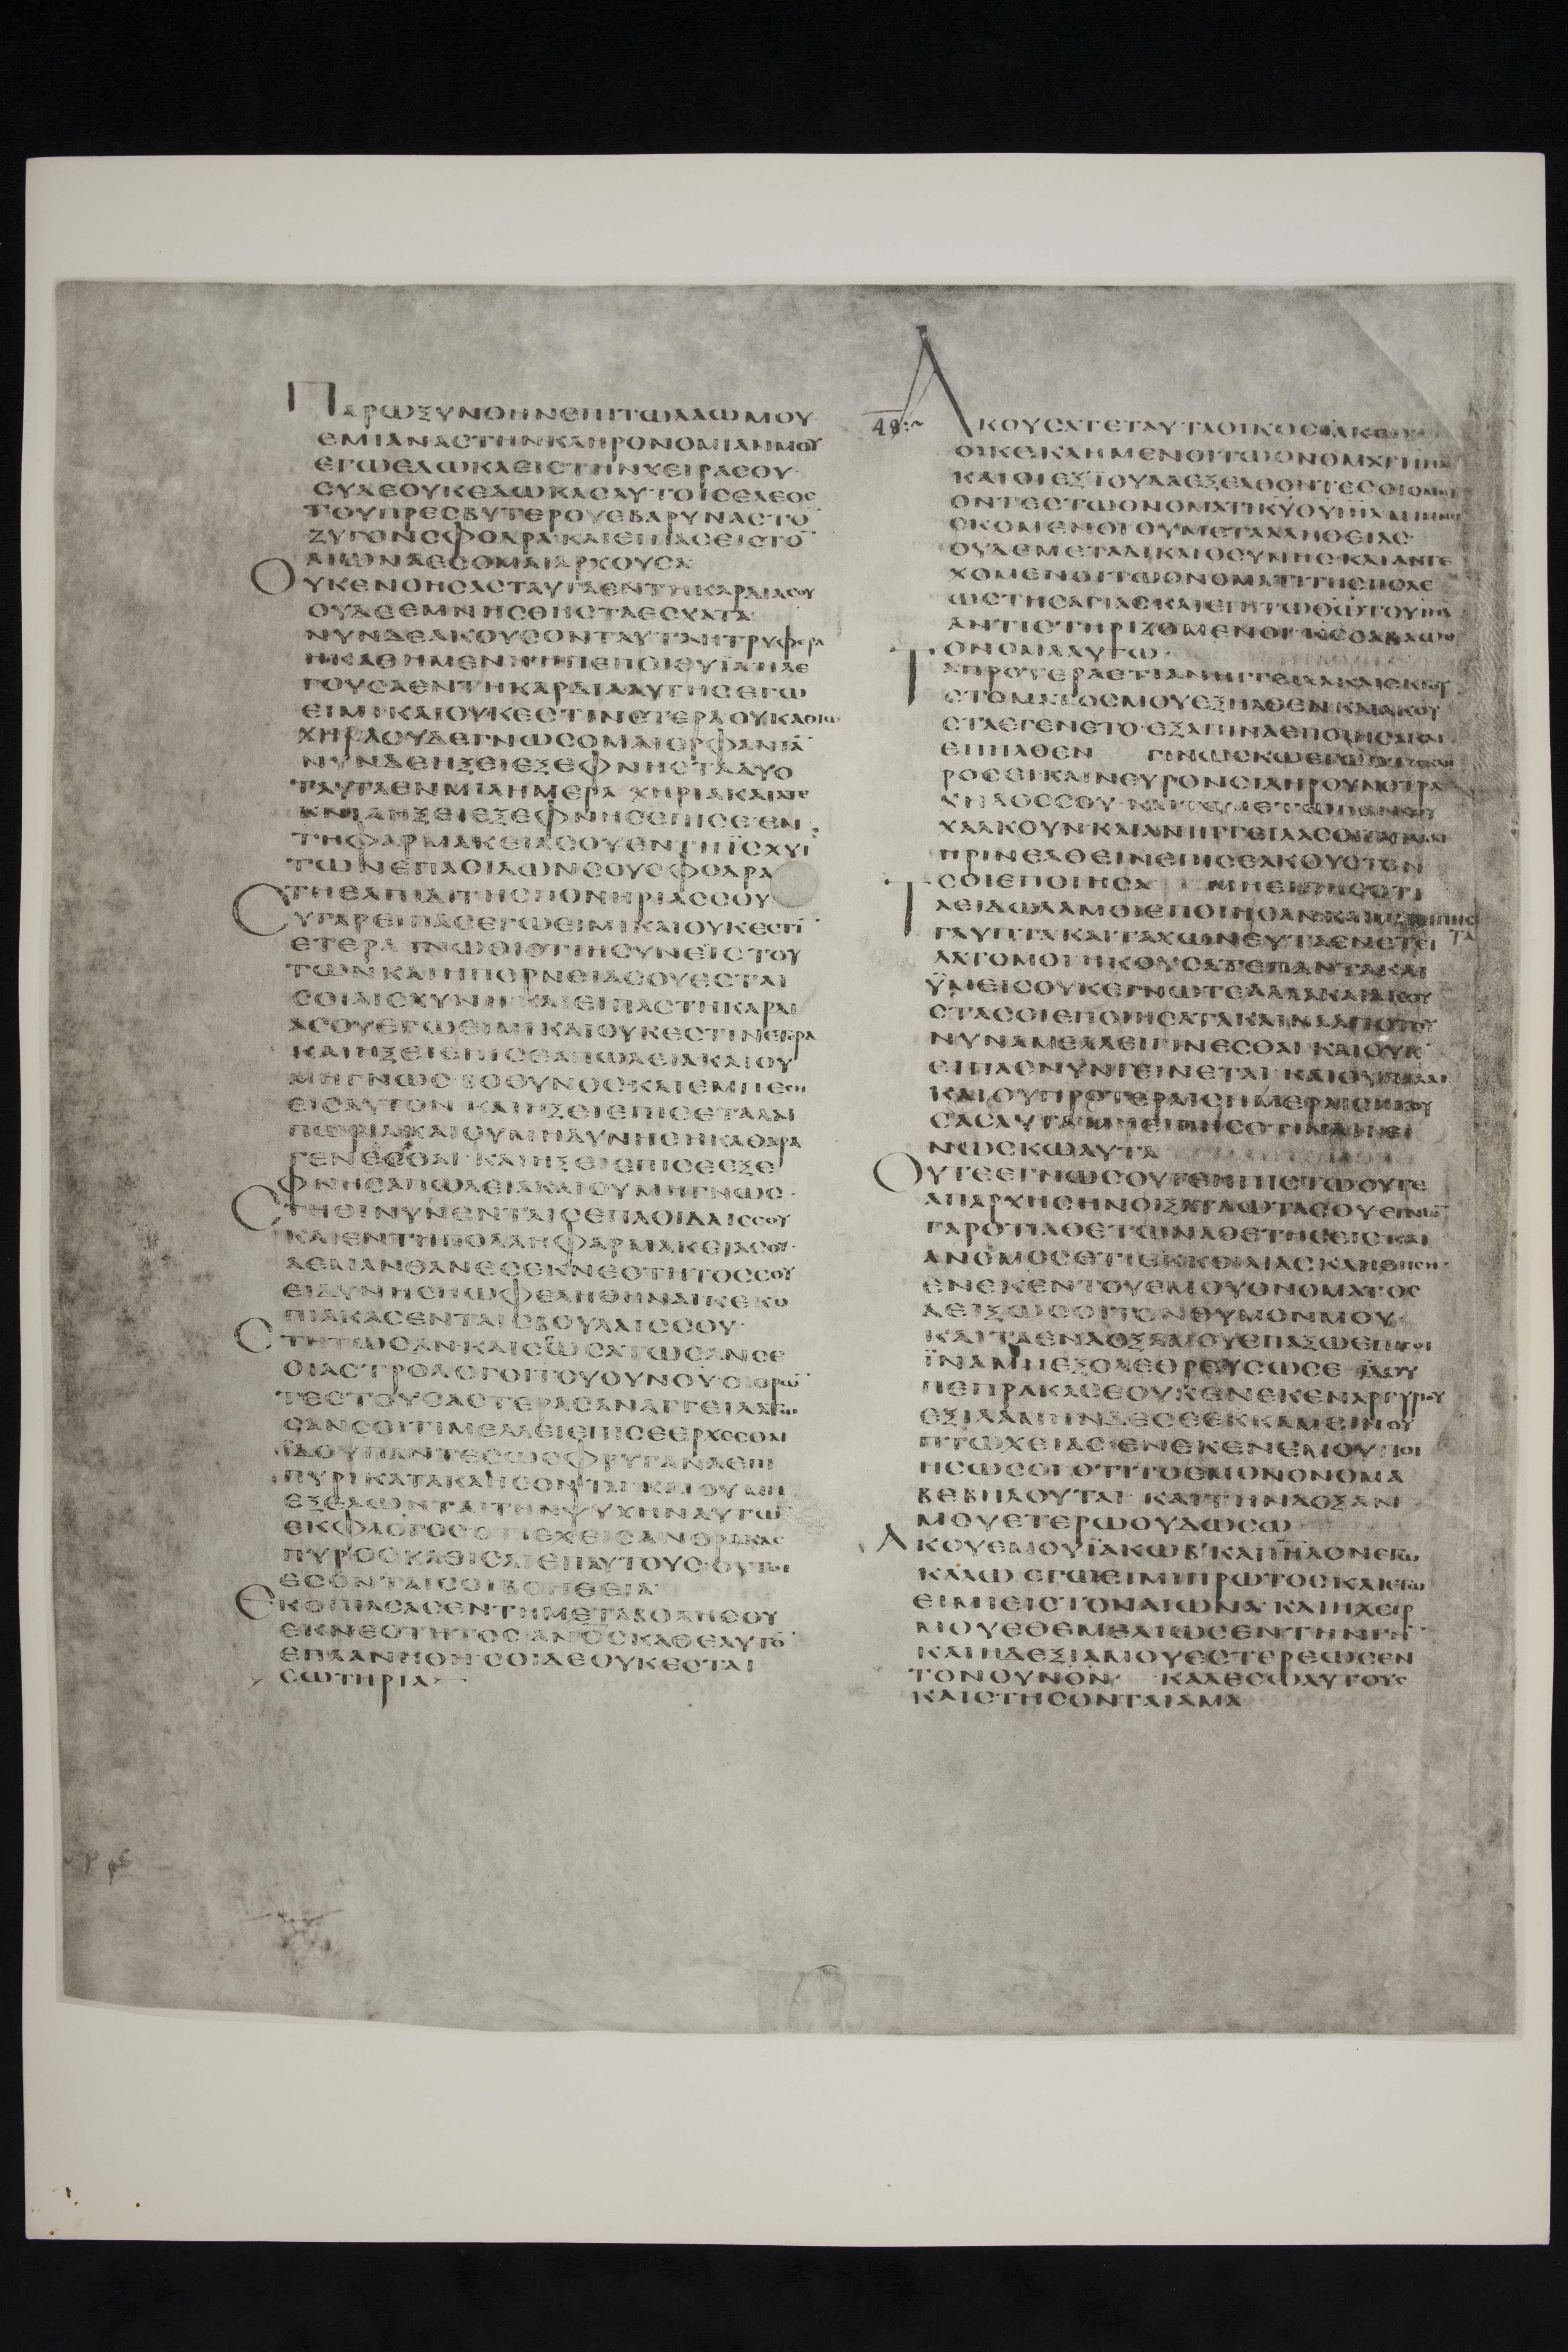 ΠΑΡΩΞΥΝΘΗΝΕΠΙΤΩΛΑΩΜΟΥ
ΕΜΙΑΝΑΣΤΗΝΚΛΗΡΟΝΟΜΙΑΝΜΟΥ
ΕΓΩΕΔΩΚΑΕΙΣΤΗΝΧΕΙΡΑΣΟΥ·
ΣΥΔΕΟΥΚΕΔΩΚΑΣΑΥΤΟΙΣΕΛΕΟΣ
ΤΟΥΠΡΕΣΒΥΤΕΡΟΥΕΒΑΡΥΝΑΣΤΟ̅
ΖΥΓΟΝΣΦΟΔΡΑ·ΚΑΙΕΙΠΑΣΕΙΣΤΟ̅
ΑΙΩΝΑΕΣΟΜΑΙΑΡΧΟΥΣΑ
ΟΥΚΕΝΟΗΣΑΣΤΑΥΤΑΕΝΤΗΚΑΡΔΙΑΣΟΥ
ΟΥΔΕΕΜΝΗΣΘΗΣΤΑΕΣΧΑΤΑ·
ΝΥΝΔΕΑΚΟΥΣΟΝΤΑΥΤΑΗΤΡΥΦΕΡΑ
ΗΚΑΘΗΜΕΝΗΗΠΕΠΟΙΘΥΪΑΗΛΕ
ΓΟΥΣΑΕΝΤΗΚΑΡΔΙΑΑΥΤΗΣΕΓΩ
ΕΙΜΙΚΑΙΟΥΚΕΣΤΙΝΕΤΕΡΑΟΥΚΑΘΙΩ
ΧΗΡΑΟΥΔΕΓΝΩΣΟΜΑΙΟΡΦΑΝΙΑ̅
ΝΥΝΔΕΗΞΕΙΕΞΕΦΝΗΣΤΑΔΥΟ
ΤΑΥΤΑΕΝΜΙΑΗΜΕΡΑ ΧΗΡΙΑΚΑΙΑΤΕ
ΚΝΙΑΗΞΕΙΕΞΕΦΝΗΣΕΠΙΣΕΕΝ
ΤΗΦΑΡΜΑΚΕΙΑΣΟΥΕΝΤΗΪΣΧΥΙ
ΤΩΝΕΠΑΟΙΔΩΝΣΟΥΣΦΟΔΡΑ
ΤΗΕΛΠΙΔΙΤΗΣΠΟΝΗΡΙΑΣΣΟΥ
ΣΥΓΑΡΕΙΠΑΣΕΓΩΕΙΜΙΚΑΙΟΥΚΕΣΤΙ̅
ΕΤΕΡΑ ΓΝΩΘΙΟΤΙΗΣΥΝΕΪΣΤΟΥ
ΤΩΝΚΑΙΗΠΟΡΝΕΙΑΣΟΥΕΣΤΑΙ
ΣΟΙΑΙΣΧΥΝΗ· ΚΑΙΕΙΠΑΣΤΗΚΑΡΔΙ
ΑΣΟΥΕΓΩΕΙΜΙΚΑΙΟΥΚΕΣΤΙΝΕΤΕΡΑ
ΚΑΙΗΞΕΙΕΠΙΣΕΑΠΩΛΕΙΑΚΑΙΟΥ
ΜΗΓΝΩΣ ΒΟΘΥΝΟΣΚΑΙΕΜΠΕΣΗ
ΕΙΣΑΥΤΟΝ ΚΑΙΗΞΕΙΕΠΙΣΕΤΑΛΑΙ
ΠΩΡΙΑΚΑΙΟΥΜΗΔΥΝΗΣΗΚΑΘΑΡΑ
ΓΕΝΕΣΘΑΙ· ΚΑΙΗΞΕΙΕΠΙΣΕΕΞΕ
ΦΝΗΣΑΠΩΛΕΙΑΚΑΙΟΥΜΗΓΝΩΣ·
ΣΤΗΘΙΝΥΝΕΝΤΑΙΣΕΠΑΟΙΔΑΙΣΣΟΥ
ΚΑΙΕΝΤΗΠΟΛΛΗΦΑΡΜΑΚΕΙΑΣΟΥ·
ΑΕΜΑΝΘΑΝΕΣΕΚΝΕΟΤΗΤΟΣΣΟΥ
ΕΙΔΥΝΗΣΗΩΦΕΛΗΘΗΝΑΙΚΕΚΟ
ΠΙΑΚΑΣΕΝΤΑΙΣΒΟΥΛΑΙΣΣΟΥ·
ΣΤΗΤΩΣΑΝ·ΚΑΙΣΩΣΑΤΩΣΑΝΣΕ
ΟΙΑΣΤΡΟΛΟΓΟΙΤΟΥΟΥΝΟΥ·ΟΙΟΡΩ̅
ΤΕΣΤΟΥΣΑΣΤΕΡΑΣΑΝΑΓΓΕΙΛΑΤΩ
ΣΑΝΣΟΙΤΙΜΕΛΛΕΙΕΠΙΣΕΕΡΧΕΣΘΑΙ
ΪΔΟΥΠΑΝΤΕΣΩΣΦΡΥΓΑΝΑΕΠΙ
ΠΥΡΙΚΑΤΑΚΑΗΣΟΝΤΑΙ ΚΑΙΟΥΜΗ
ΕΞΕΛΩΝΤΑΙΤΗΝΨΥΧΗΝΑΥΤΩ̅
ΕΚΦΛΟΓΟΣΟΤΙΕΧΕΙΣΑΝΘΡΑΚΑΣ
ΠΥΡΟΣΚΑΘΙΣΑΙΕΠΑΥΤΟΥΣ·ΟΥΤΟΙ
ΕΣΟΝΤΑΙΣΟΙΒΟΗΘΕΙΑ·
ΕΚΟΠΙΑΣΑΣΕΝΤΗΜΕΤΑΒΟΛΗΣΟΥ
ΕΚΝΕΟΤΗΤΟΣ·ΑΝΟΣΚΑΘΕΑΥΤΟ̅
ΕΠΛΑΝΗΘΗ·ΣΟΙΔΕΟΥΚΕΣΤΑΙ
ΣΩΤΗΡΙΑ·
48:~ ΑΚΟΥΣΑΤΕΤΑΥΤΑΟΙΚΟΣΪΑΚΩΒ
ΟΙΚΕΚΛΗΜΕΝΟΙΤΩΟΝΟΜΑΤΙ
ΚΑΙΟΙΕΞΪΟΥΔΑΕΞΕΛΘΟΝΤΕΣΟΙΟΜΝΥ
ΟΝΤΕΣΤΩΟΝΟΜΑΤΙΚΥΟΥ
ΣΚΟΜΕΝΟΙΟΥΜΕΤΑΑΛΗΘΕΙΑΣ
ΟΥΔΕΜΕΤΑΔΙΚΑΙΟΣΥΝΗΣ·ΚΑΙΑΝΤΕ
ΧΟΜΕΝΟΙΤΩΟΝΟΜΑΤΙΤΗΣΠΟΛΕ
ΩΣΤΗΣΑΓΙΑΣΚΑΙΕΠΙΤΩΘΩΤΟΥΙΗΛ
ΑΝΤΙΣΤΗΡΙΖΟΜΕΝΟΙ·ΚΣΣΑΒΑΩΘ
ΟΝΟΜΑΑΥΤΩ·
ΤΑΠΡΟΤΕΡΑΕΤΙΑΝΗΓΓΕΙΛΑΚΑΙΕΚΤΟΥ
ΣΤΟΜΑΤΟΣΜΟΥΕΞΗΛΘΕΝΚΑΙΑΚΟΥ
ΣΤΑΕΓΕΝΕΤΟ·ΕΞΑΠΙΝΑΕΠΟΙΗΣΑΚΑΙ
ΕΠΗΛΘΕΝ ΓΙΝΩΣΚΩΕΓΩ
ΡΟΣΕΙΚΑΙΝΕΥΡΟΝΣΙΔΗΡΟΥΝΟΤΡΑ
ΧΗΛΟΣΣΟΥ·ΚΑΙΤΟΜΕΤΩΠΟΝΣΟΥ
ΧΑΛΚΟΥΝΚΑΙΑΝΗΓΓΕΙΛΑΣΟΙ
ΠΡΙΝΕΛΘΕΙΝΕΠΙΣΕΑΚΟΥΣΤΟΝ
ΣΟΙΕΠΟΙΗΣΑ ΜΗΕΙΠΗΣΟΤΙ
ΤΑΕΙΔΩΛΑΜΟΙΕΠΟΙΗΣΑΝ·ΚΑΙ
ΓΛΥΠΤΑΚΑΙΤΑΧΩΝΕΥΤΑΕΝΕΤΕΙ
ΛΑΤΟΜΟΙ ΗΚΟΥΣΑΤΕΠΑΝΤΑΚΑΙ
ΫΜΕΙΣΟΥΚΕΓΝΩΤΕΑΛΛΑΚΑΙΑΚΟΥ
ΣΤΑΣΟΙΕΠΟΙΗΣΑΤΑΚΑΙΝΑΑΠΟΤΟΥ
ΝΥΝΑΜΕΛΛΕΙΓΙΝΕΣΘΑΙ ΚΑΙΟΥΚ
ΕΙΠΑΣΝΥΝΓΕΙΝΕΤΑΙ ΚΑΙΟΥΠΑΛΑΙ
ΚΑΙΟΥΠΡΟΤΕΡΑΙΣΗΜΕΡΑΙΣΗΚΟΥ
ΣΑΣΑΥΤΑΜΗΕΙΠΗΣΟΤΙΝΑΙΓΕΙ
ΝΩΣΚΩΑΥΤΑ
ΟΥΤΕΕΓΝΩΣΟΥΤΕΗΠΙΣΤΩΟΥΤΕ
ΑΠΑΡΧΗΣΗΝΟΙΞΑΤΑΩΤΑΣΟΥΕΓΝΩ̅
ΓΑΡΟΤΙΑΘΕΤΩΝΑΘΕΤΗΣΕΙΣΚΑΙ
ΑΝΟΜΟΣΕΤΙΕΚΚΟΙΛΙΑΣΚΛΗΘΗΣΗ·
ΕΝΕΚΕΝΤΟΥΕΜΟΥΟΝΟΜΑΤΟΣ
ΔΕΙΞΩΣΟΙΤΟΝΘΥΜΟΝΜΟΥ·
ΚΑΙΤΑΕΝΔΟΞΑΜΟΥΕΠΑΞΩΕΠΙΣΟΙ
ΪΝΑΜΗΕΞΟΛΕΘΡΕΥΣΩΣΕ ΪΔΟΥ
ΠΕΠΡΑΚΑΣΕΟΥΧΕΝΕΚΕΝΑΡΓΥΡΙΟΥ
ΕΞΙΛΑΜΗΝΔΕΣΕΕΚΚΑΜΕΙΝΟΥ
ΠΤΩΧΕΙΑΣ·ΕΝΕΚΕΝΕΜΟΥΠΟΙ
ΗΣΩΣΟΙΟΤΙΤΟΕΜΟΝΟΝΟΜΑ
ΒΕΒΗΛΟΥΤΑΙ ΚΑΙΤΗΝΔΟΞΑΝ
ΜΟΥΕΤΕΡΩΟΥΔΩΣΩ
ΑΚΟΥΕΜΟΥΪΑΚΩΒ·ΚΑΙΙΗΛΟΝΕΓΩ
ΚΑΛΩ ΕΓΩΕΙΜΙΠΡΩΤΟΣΚΑΙΕΓΩ
ΕΙΜΙΕΙΣΤΟΝΑΙΩΝΑ·ΚΑΙΗΧΕΙΡ
ΜΟΥΕΘΕΜΕΛΙΩΣΕΝΤΗΝΓΗ̅
ΚΑΙΗΔΕΞΙΑΜΟΥΕΣΤΕΡΕΩΣΕΝ
ΤΟΝΟΥΝΟΝ· ΚΑΛΕΣΩΑΥΤΟΥΣ
ΚΑΙΣΤΗΣΟΝΤΑΙΑΜΑ